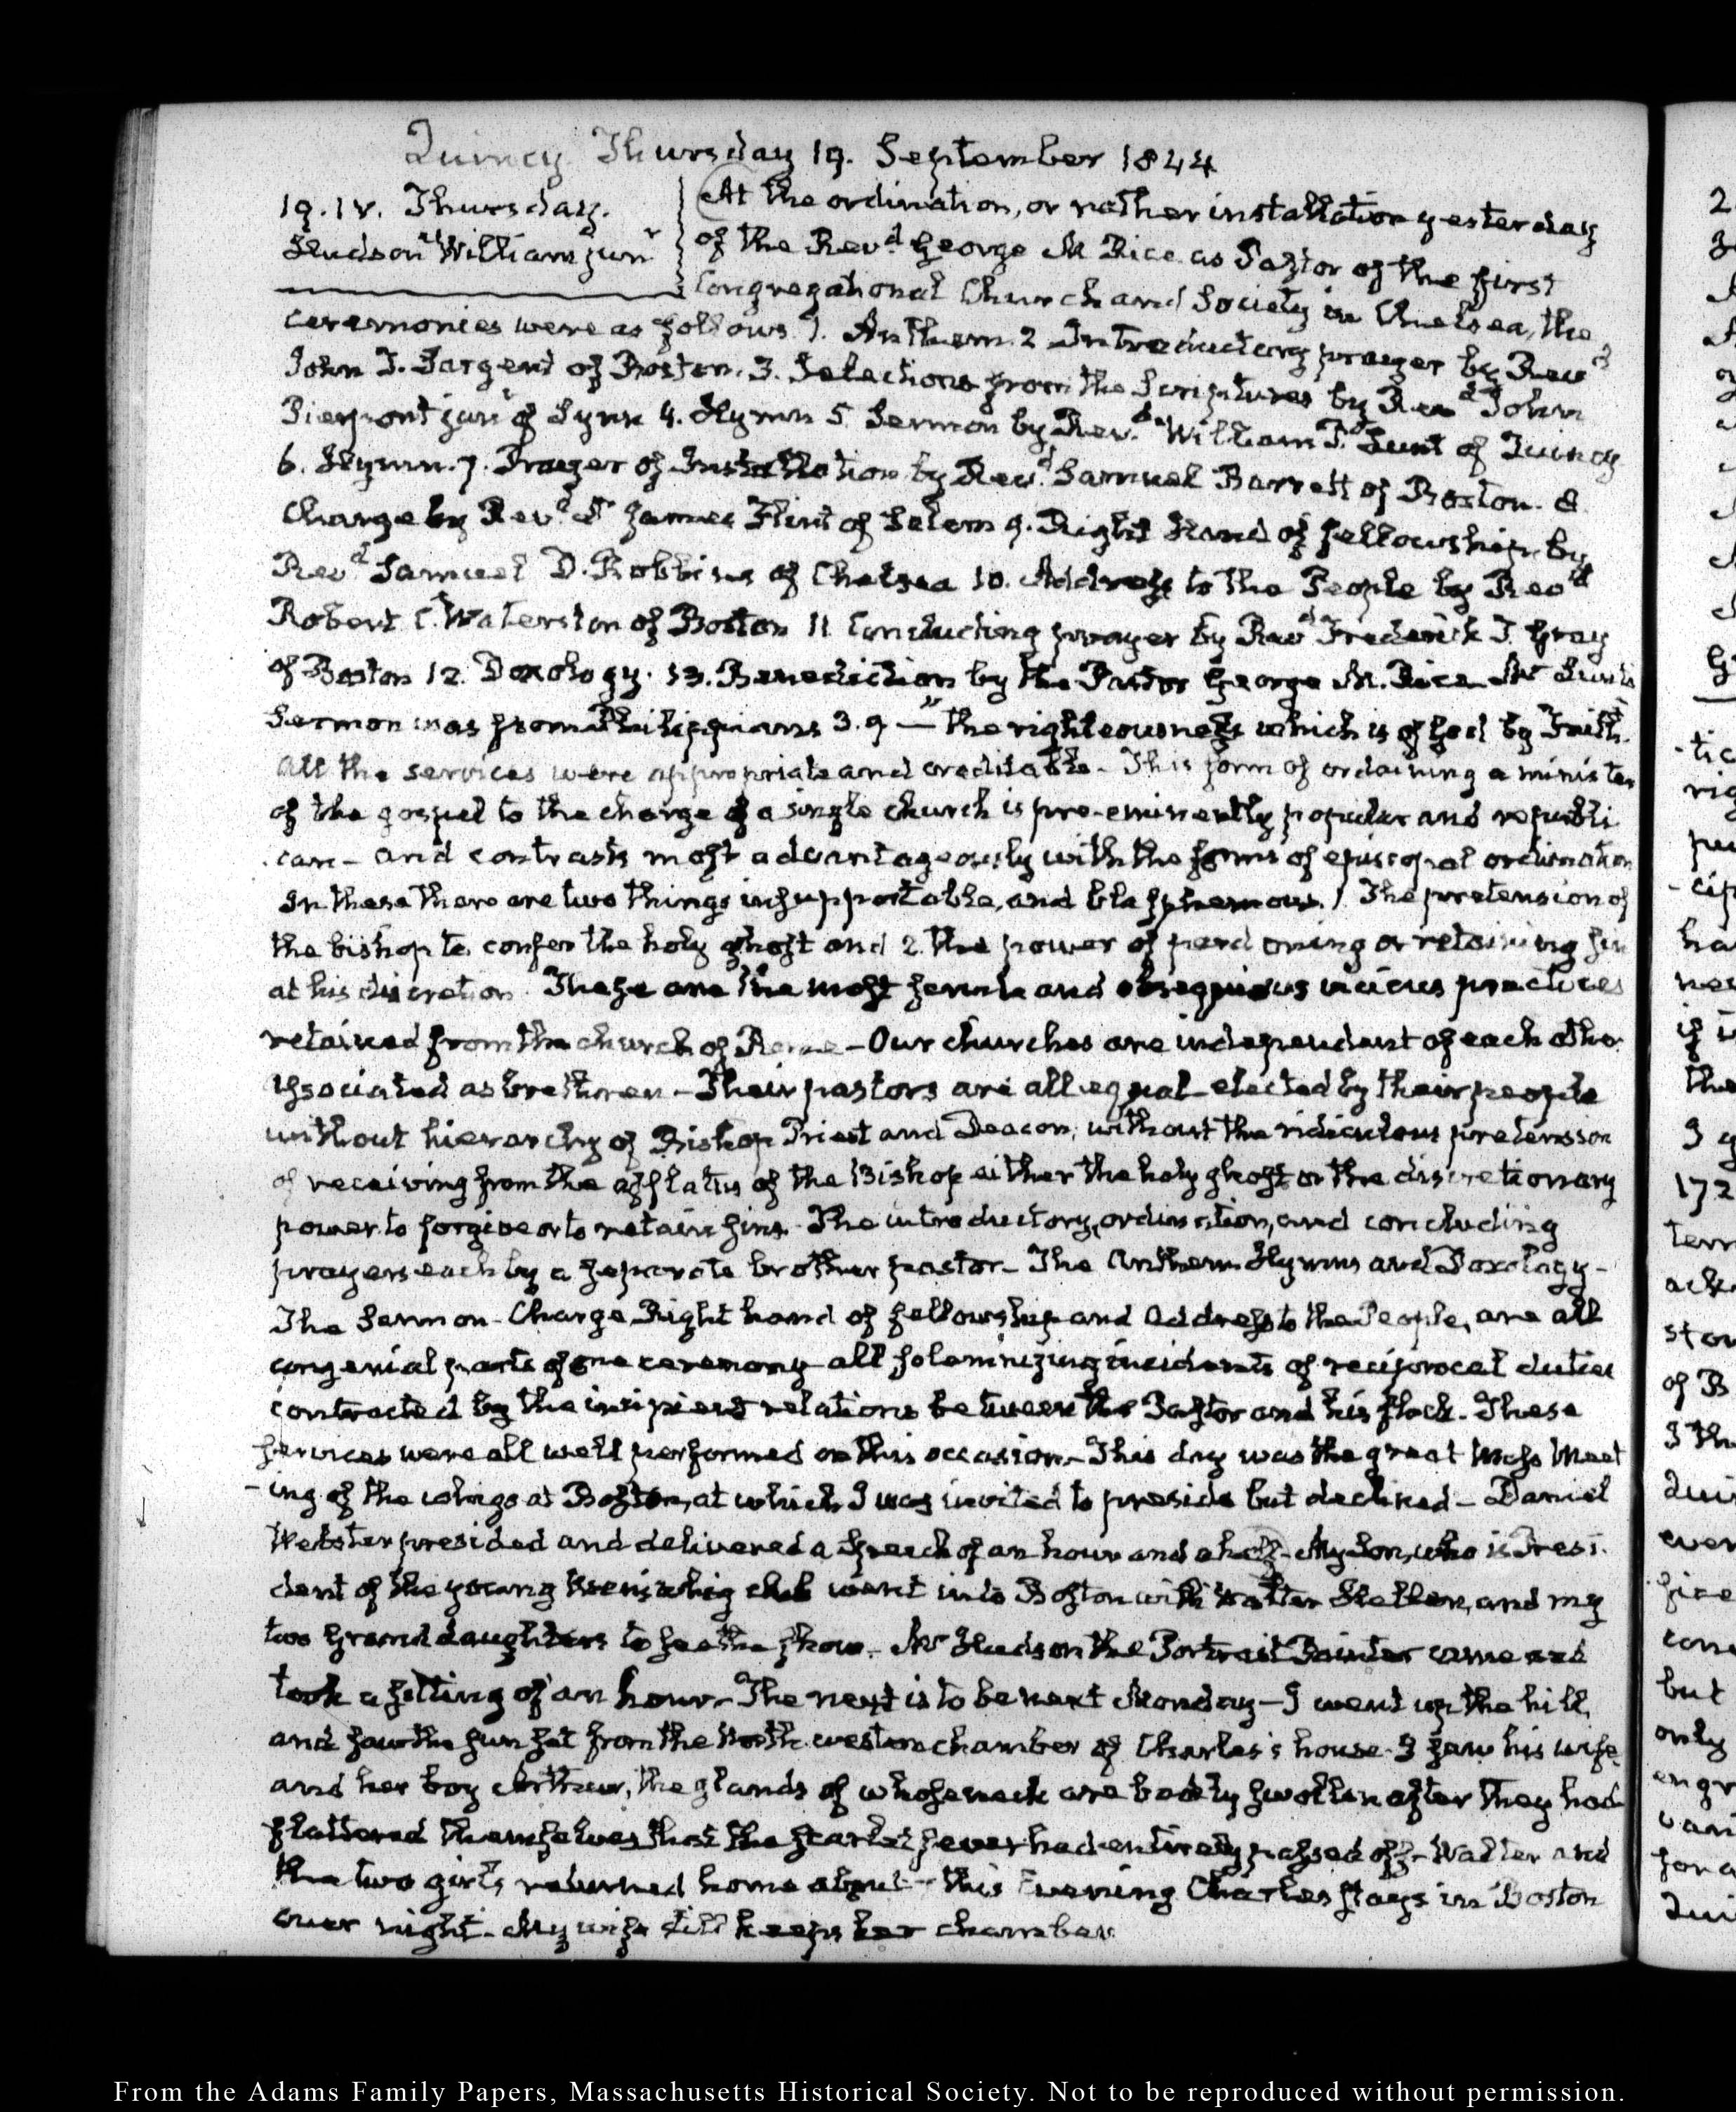 Quincy Thursday 19. September 1844
19. IV. Thursday.
Hudson William junr
At the ordination, or rather installation yesterday
of the Revd. George M Rice as Pastor of the first
Congregational Church and Society in Chelsea, the
ceremonies were as follows 1. Anthem. 2 Introductory prayer by Revd
John T. Sargent of Boston. 3. Selections from the Scriptures by Revd John
Pierpont junr of Lynn 4. Hymn 5 Sermon by Revd. William P. Lunt of Quincy
6. Hymn. 7. Prayer of Installation by Revd. Samuel Barrett of Boston. 8.
Charge by Revd. Dr James Flint of Salem 9. Right Hand of fellowship, by
Revd. Samuel D. Robbins of Chelsea 10. Address to the People by Revd
Robert C. Waterston of Boston 11 Concluding prayer by Revd Frederick T. Gray
of Boston 12. Doxology. 13. Benediction by the Pastor George M. Rice Mr Lunt's
Sermon was from Philippians 3.9 — "the righteousness which is of God by Faith.
All the services were appropriate and creditable - This form of ordaining a minister
of the gospel to the charge of a single church is pre-eminently popular and republi
can - and contrasts most advantageously with the forms of episcopal ordination
In these there are two things insupportable, and blasphemous. 1. The pretension of
the bishop to confer the holy ghost and 2. the power of pardoning or retaining sin
at his discretion. These are the most and obsequious vicious practices
retained from the church of Rome - Our churches are independent of each other
associated as brethren - Their pastors are all equal - elected by their people
without hierarchy of Bishop Priest and Deacon, without the ridiculous pretension
of receiving from the afflatus of the Bishop either the holy ghost or the discretionary
power to forgive or to retain sins. The introductory, ordination, and concluding
prayers each by a separate brother pastor - The Anthem Hymns and Doxology -
The Sermon - Charge Right hand of fellowship and Address to the People, are all
congenial parts of one ceremony all solemnizing incidents of reciprocal duties
contracted by the incipient relations between the Pastor and his flock. These
services were all well performed on this occasion - This day was the great Mass Meet
-ing of the whigs at Boston, at which I was invited to preside but declined - Daniel
Webster presided and delivered a speech of an hour and a half - My Son, who is Presi
dent of the young men's whig club went into Boston with Walter Hellen, and my
two Grand daughters to see the show - Mr Hudson the Portrait Painter came and
took a sitting of an hour - The next is to be next Monday - I went up the hill,
and saw the sun set from the North western chamber of Charles's house - I saw his wife
and her boy Arthur, the glands of whose neck are badly swollen after they had
flattered themselves that the scarlet fever had entirely passed off - Walter and
the two girls returned home about this Evening Charles stays in Boston
over night - My wife still keeps her chamber